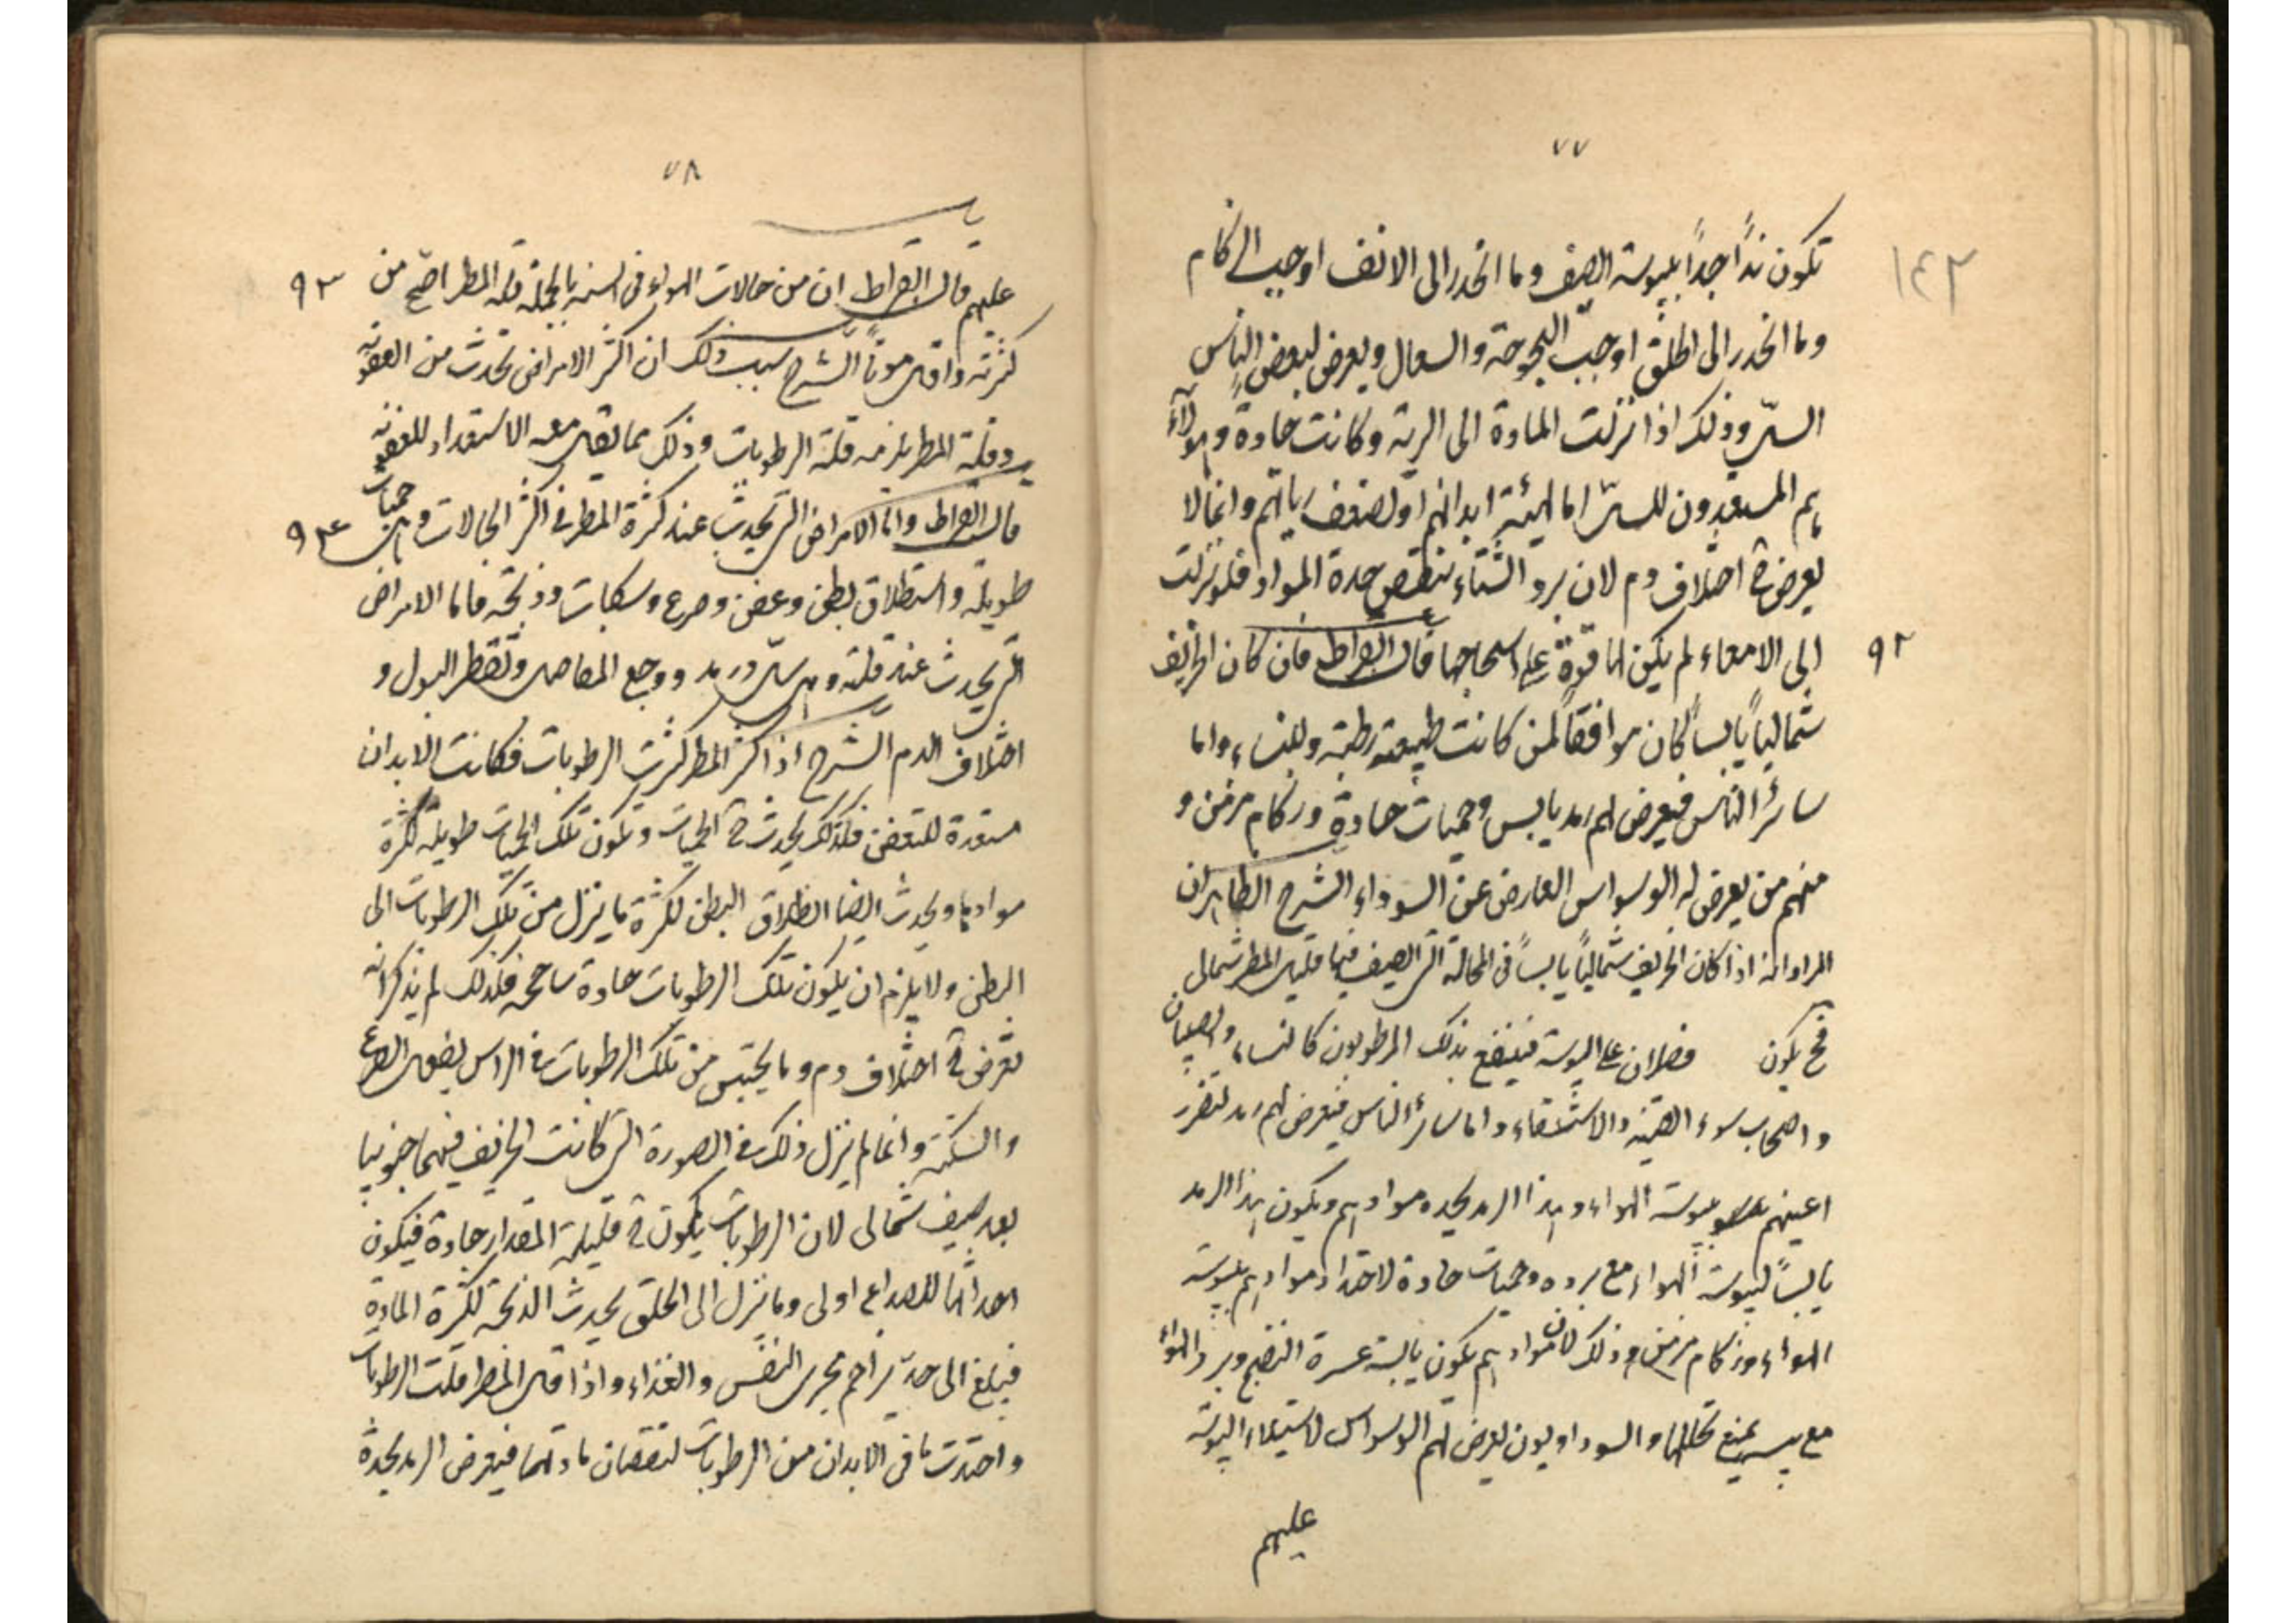 ٧٧
١٤٢
تكون نداً جداً بيبوسة الصيف وما انحدر الى الانف اوجب الزكام
وما انحدر الى الحلق اوجب البحوحة والسعال ويعرض لبعض الناس
السل وذلك اذا نزلت المادة الى الرية وكانت حادة وهولاء
هم المستعدون للسل اما لهيئة ابدانهم او لضعف رياتهم وانما لا
يعرض ح اختلاف دم لان برد الشتاء ينقص حدة المواد فلو نزلت
الى الامعاء لم يكن لها قوة على اسحاجها قال ابقراط فان كان الخريف
٩٢
شمالياً يابساً كان موافقاً لمن كانت طبيعته رطبة وللنساء واما
سائر الناس فيعرض لهم رمد يابس وحميات حادة وزكام مزمن و
منهم من يعرض له الوسواس العارض عن السوداء الشرح الظاهر ان
المراد انه اذا كان الخريف شمالياً يابساً فى الحالة التى الصيف فيها قليل المطر شمالى
فح يكون فضلان على اليبوسة فينتفع بذلك المرطوبون كالنساء والصبيان
واصحاب سوء القنية والاستسقاء واما سائر الناس فيعرض لهم رمد لتضرر
اعينهم بيبوسة الهواء وهذا الرمد يحده موادهم ويكون هذا الرمد
يابساً ليبوسة الهواء مع برده وحميات حادة لاحتداد موادهم بيبوسة
الهواء وزكام مزمن وذلك لان موادهم يكون يابسة عسرة النضج وبرد الهواء
مع يبسه يمنع تحللها والسوداويون يعرض لهم الوسواس لاستيلاء اليبوسة
عليهم
٧٨
عليهم قال ابقراط ان من حالات الهواء فى السنة بالجملة قلة المطر اصح من
٩٣
كثرته واقل موتاً الشرح سبب ذلك ان اكثر الامراض تحدث من العفونة
وقلة المطر يلزمه قلة الرطوبات وذلك مما يقل معه الاستعداد للعفونة
قال ابقراط واما الامراض التى يحدث عند كثرة المطر فى اكثر الحالات وهى حميات
٩٤
طويلة واستطلاق بطن وعفن وصرع وسكتات وذبحة فاما الامراض
التى يحدث عند قلته وهى سل ورمد ووجع المفاصل وتقطر البول و
اختلاف الدم الشرح اذا كثر المطر كثرت الرطوبات فكانت الابدان
مستعدة للتعفن فلذلك يحدث ح الحميات وتكون تلك الحميات طويلة لكثرة
موادها ويحدث ايضا انطلاق البطن لكثرة ما ينزل من تلك الرطوبات الى
البطن ولا يلزم ان يكون تلك الرطوبات حادة ساحجة فلذلك لم يذكر انه
تعرض ح اختلاف دم وما يحتبس من تلك الرطوبات فى الراس يفعل الصرع
والسكتة وانما لم ينزل ذلك فى الصورة التى كانت الخريف فيهما جنوبيا
بعد صيف شمالى لان الرطوبات يكون ح قليلة المقدار حادة فيكون
احداثها للصداع اولى وما نزل الى الحلق يحدث الذبحة لكثرة المادة
فيبلغ الى حد يزاحم مجرى النفس والغذاء واذا قل المطر قلت الرطوبات
واحتدت ما فى الابدان من الرطوبات لنقصان مادتها فيعرض الرمد لحدة